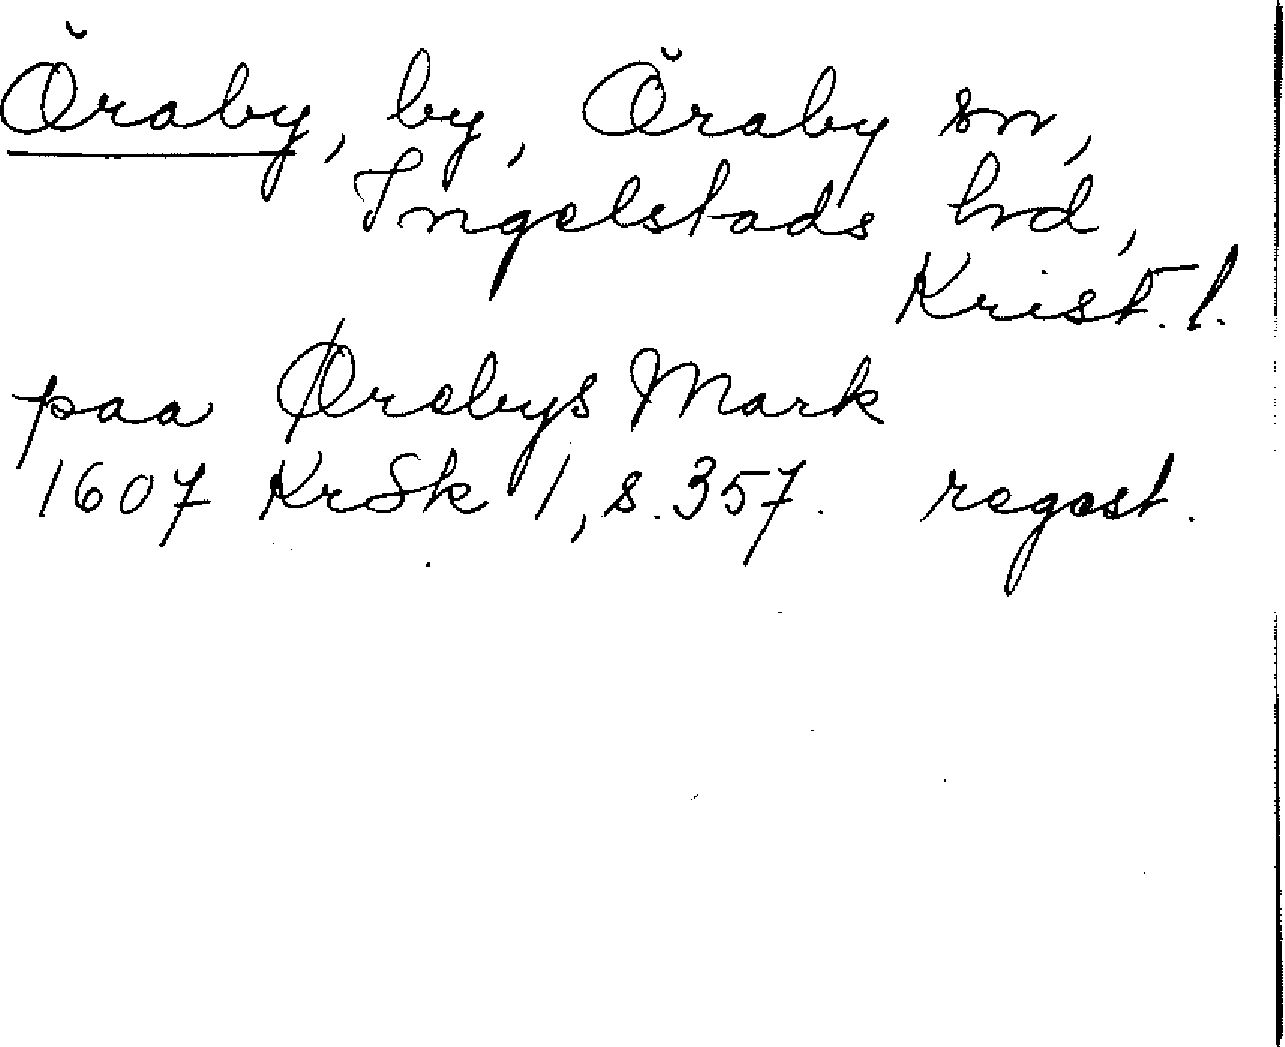 Öraby, by, Öraby sn,
Ingelstads hrd,
Krist. l.
paa Ørebys Mark
1607 KrSk 1, s. 357. regest.